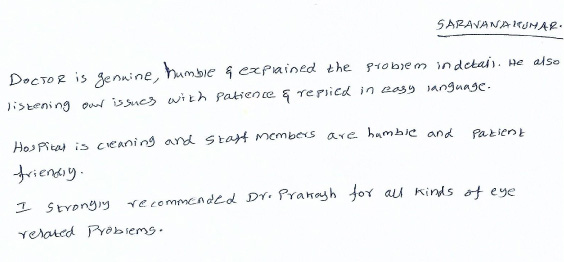 SARAVANAKUMAR.
DOCTOR is genuine, humble & explained the problem in detail. He also
listening our issues with patience & replied in easy language.
Hospital is cleaning and staff members are humble and patient
friendly.
I strongly recommended Dr. Prakash for all kinds of eye
related problems.